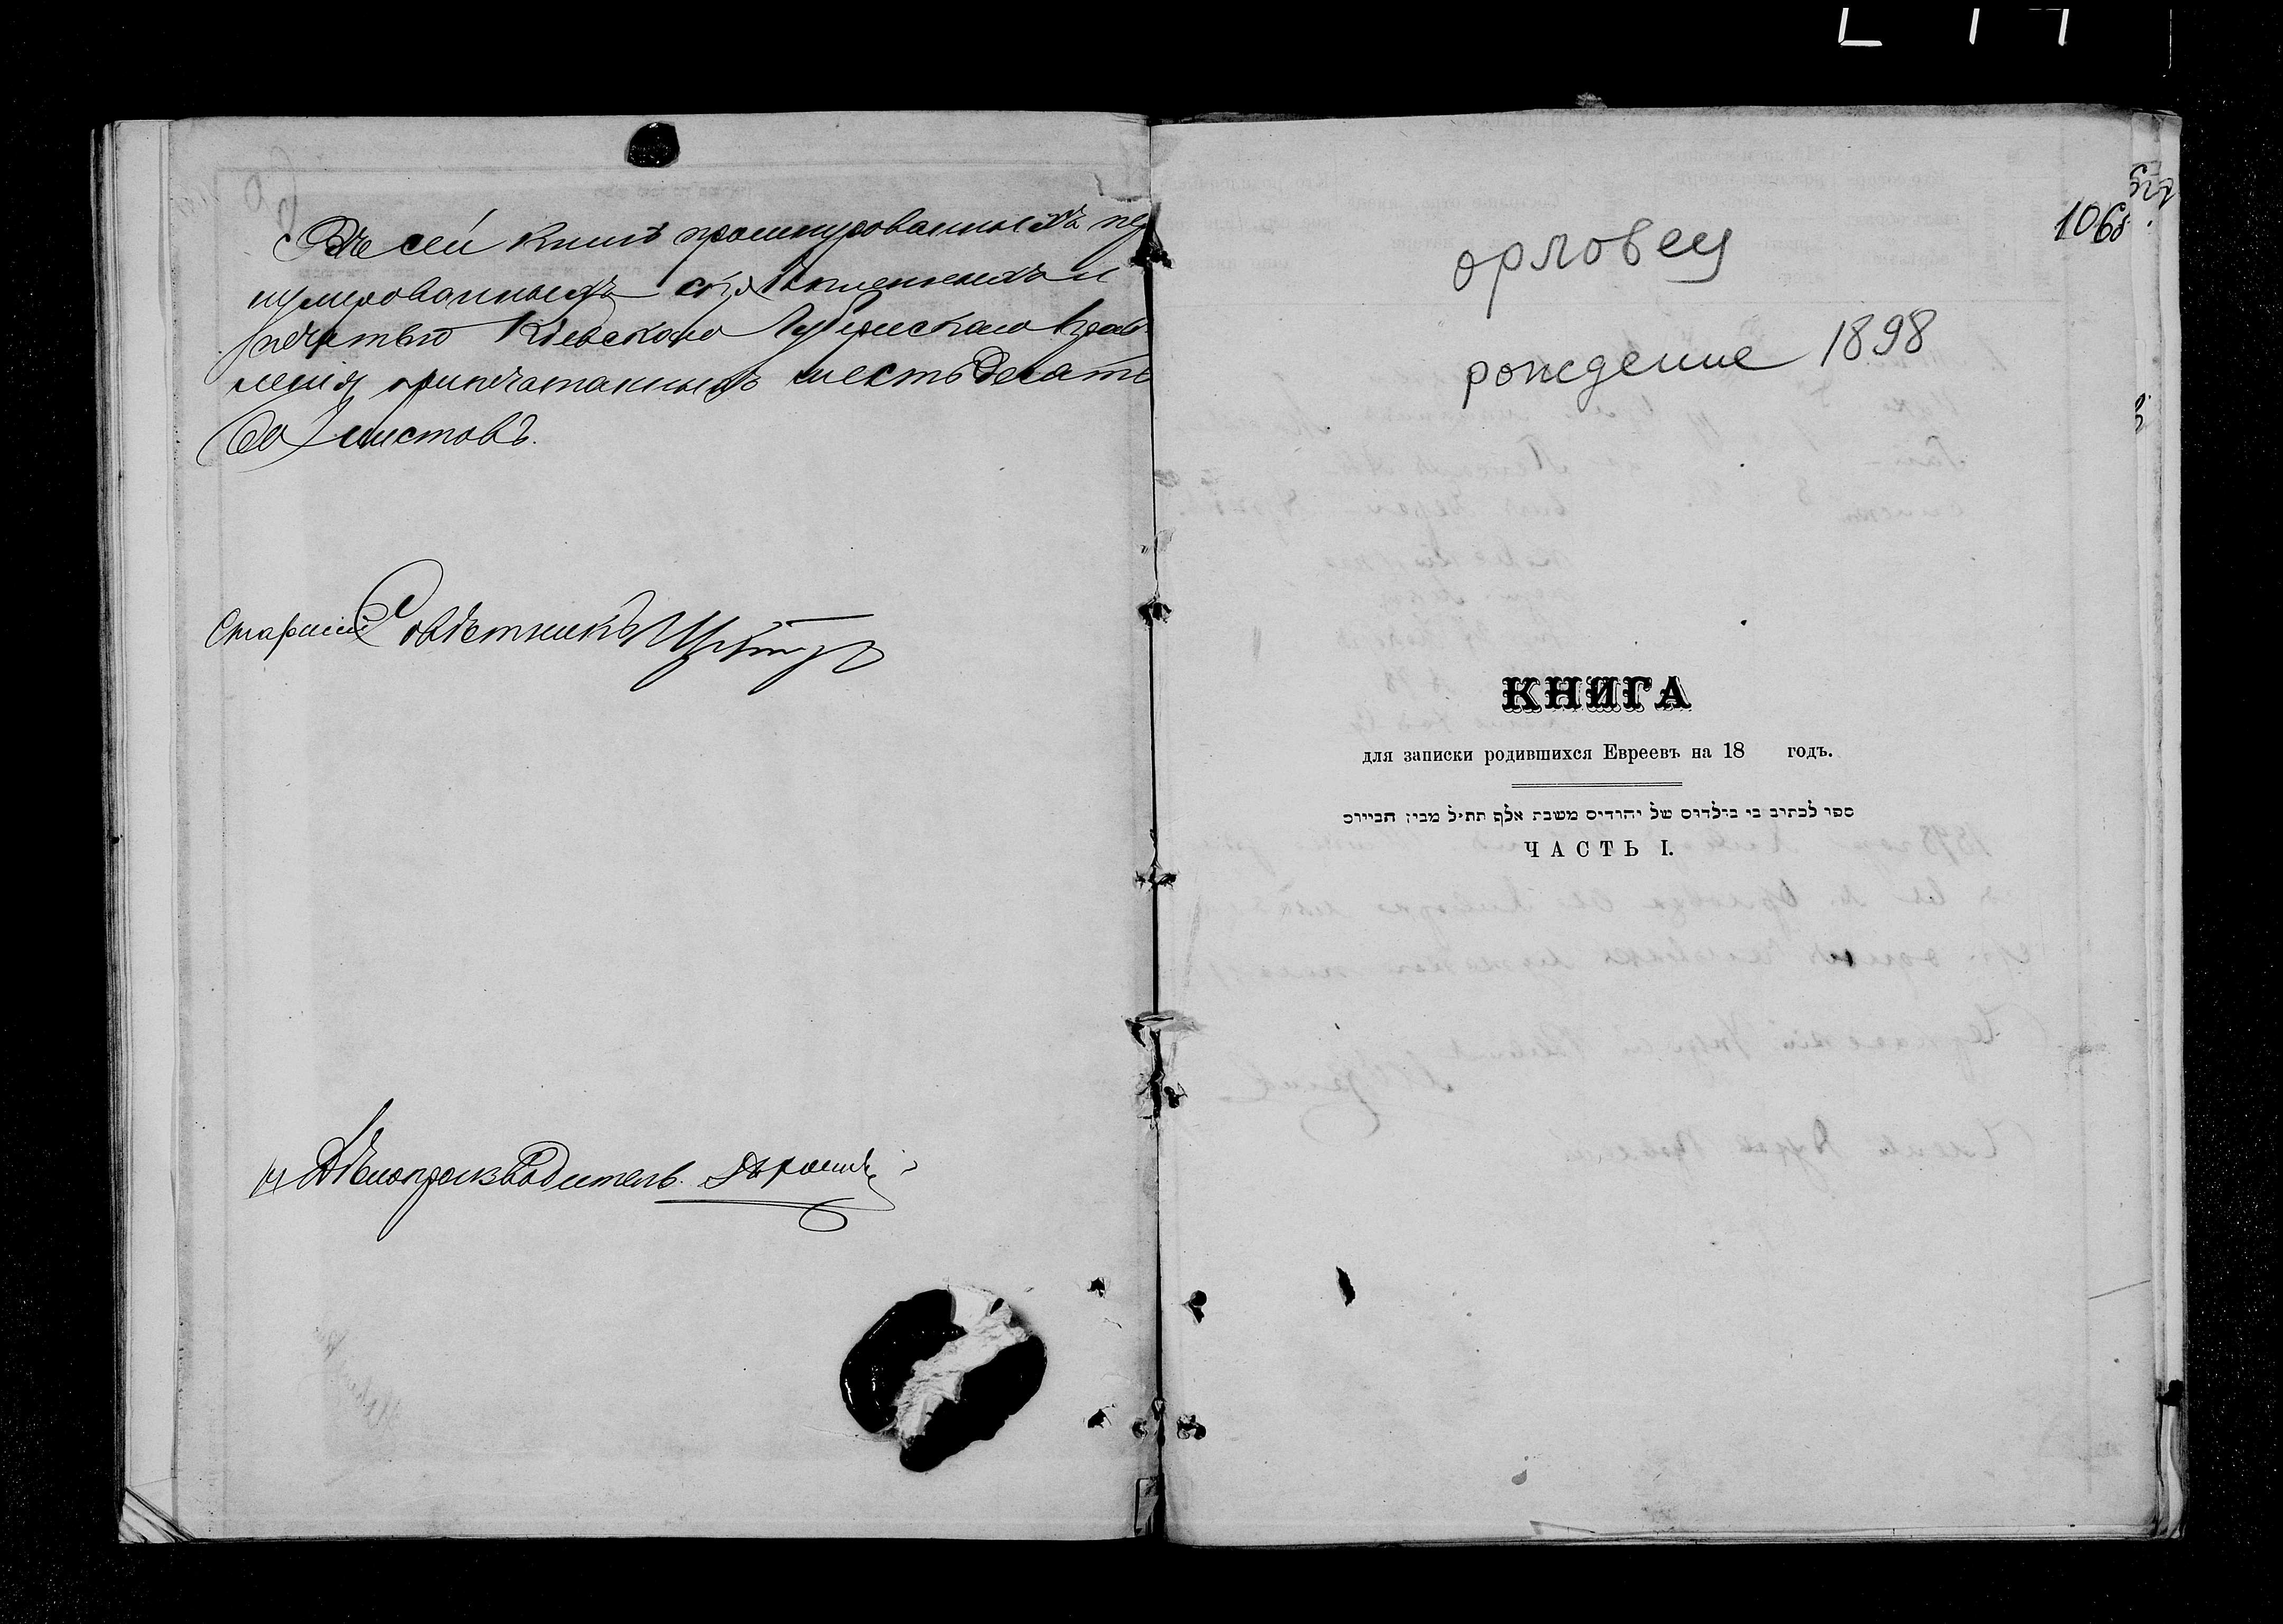 Въ сей книгѣ прошнурованныхъ ну
мерованныхъ скрѣпленныхъ и
печатью Кіевскаго Губернскаго Прав
ленія припечатанныхъ шестьдесятъ
(60) листовъ.
Старшій Совѣтникъ
И Дѣлопроизводитель
орловец
1068
рождение 1898
КНИГА
для записки родившихся Евреевъ на 18 годъ.
ספר לכתוב בו בילדים של יהודים משבת אלף תת״ל מבין הביירים
ЧАСТЬ I.